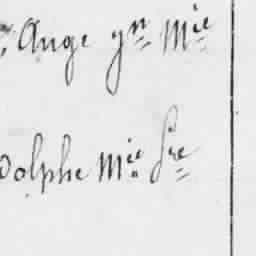 Ange gn Mie
dolphe Mie fre